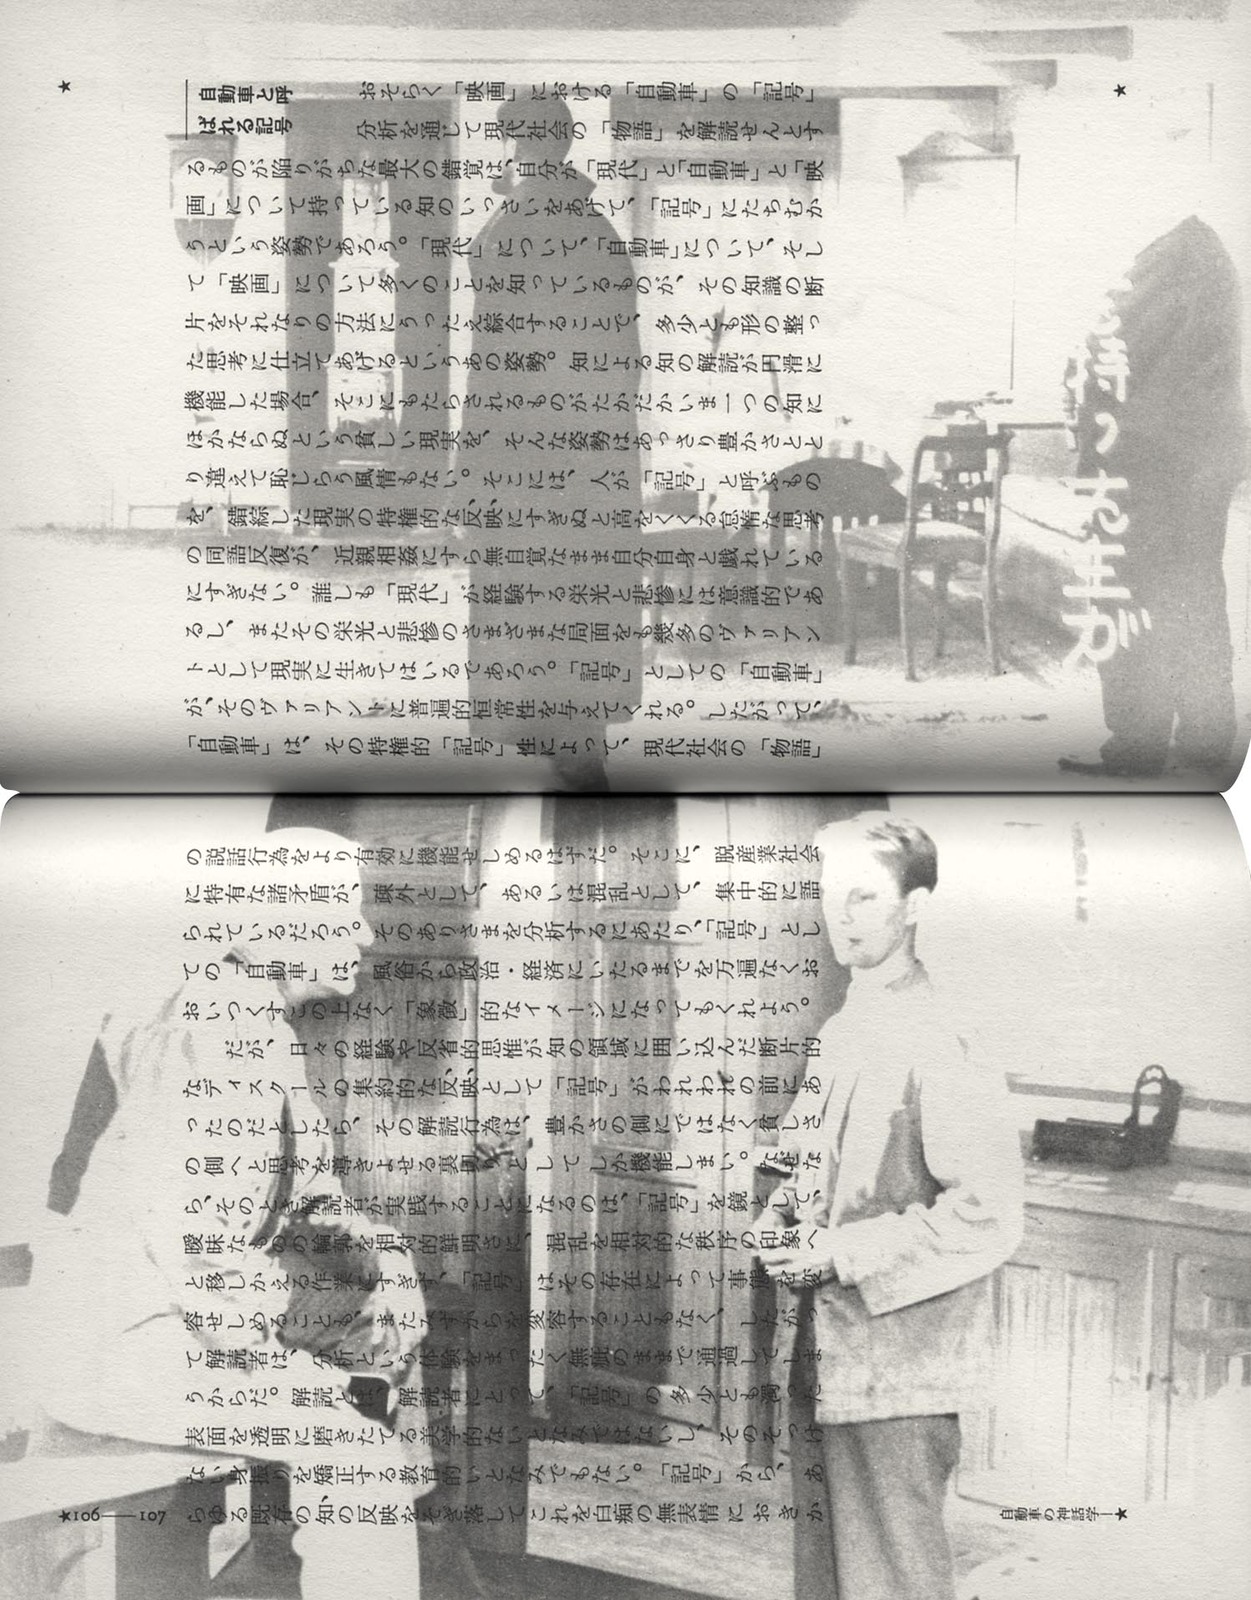 自動車と呼
ばれる記号
おそらく「映画」における「自動車」の「記号」
分析を通じて現代社会の「物語」を解読せんとす
るものが陥りがちな最大の錯覚は、自分が「現代」と「自動車」と「映
画」について持っている知のいっさいをあげて、「記号」にたちむか
うという姿勢であろう。「現代」について、「自動車」について、そし
て「映画」について多くのことを知っているものが、その知識の断
片をそれなりの方法にうったえ綜合することで、多少とも形の整っ
た思考に仕立てあげるというあの姿勢。知による知の解読が円滑に
機能した場合、そこにもたらされるものがたかだかいま一つの知に
ほかならぬという貧しい現実を、そんな姿勢はあっさり豊かさとと
り違えて恥じらう風情もない。そこには、人が「記号」と呼ぶもの
を、錯綜した現実の特権的な反映にすぎぬと高をくくる怠惰な思考
の同語反復が、近親相姦にすら無自覚なまま自分自身と戯れている
にすぎない。誰しも「現代」が経験する栄光と悲惨には意識的であ
るし、またその栄光と悲惨のさまざまな局面をも幾多のヴァリアン
トとして現実に生きてはいるであろう。「記号」としての「自動車」
が、そのヴァリアントに普遍的恒常性を与えてくれる。したがって、
「自動車」は、その特権的「記号」性によって、現代社会の「物語」
の説話行為をより有効に機能せしめるはずだ。そこに、脱産業社会
に特有な諸矛盾が、疎外として、あるいは混乱として、集中的に語
られているだろう。そのありさまを分析するにあたり、「記号」とし
ての「自動車」は、風俗から政治・経済にいたるまでを万遍なくお
おいつくすこの上なく「象徴」的なイメージになってもくれよう。
だが、日々の経験や反省的思惟が知の領域に囲い込んだ断片的
なディスクールの集約的な反映として「記号」がわれわれの前にあ
ったのだとしたら、その解読行為は、豊かさの側にではなく貧しさ
の側へと思考を導きよせる裏切りとしてしか機能しまい。なぜな
ら、そのとき解読者が実践することになるのは、「記号」を鏡として、
曖昧なものの輪郭を相対的鮮明さに、混乱を相対的な秩序の印象へ
と移しかえる作業にすぎず、「記号」はその存在によって事態を変
容せしめることも、またみずからを変容することもなく、したがっ
て解読者は、分析という体験をまったく無傷のままで通過してしま
うからだ。解読とは、解読者にとって、「記号」の多少とも濁った
表面を透明に磨きたてる美学的ないとなみではないし、そのそっけ
ない身振りを矯正する教育的いとなみでもない。「記号」から、あ
らゆる既存の知の反映をそぎ落してこれを白痴の無表情におきか
★106——107
自動車の神話学—★